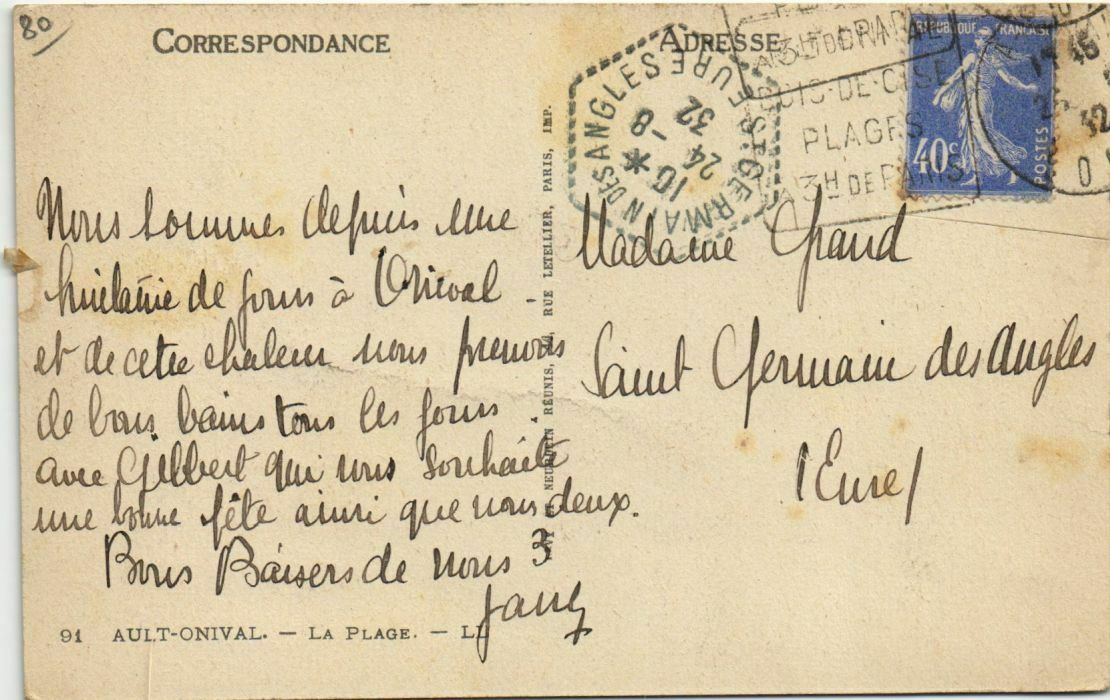 80
CORRESPONDANCE
ADRESSE
RÉPUBLIQUE FRANÇAISE
40c
POSTES
BOIS-DE-CISE
PLAGES
A 3H DE PARIS
ST GERMAIN DES ANGLES EURE
10 *
24 -8
32
Nous sommes depuis une
huitaine de jours à Onival
et de cette chaleur nous prenons
de bons bains tous les jours
avec Gilbert qui vous souhaite
une bonne fête ainsi que nous deux.
Bons Baisers de nous 3
Madame Grand
Saint Germain des Angles
(Eure)
NEURDEIN RÉUNIS, RUE LETELLIER, PARIS, IMP.
91 AULT-ONIVAL. — LA PLAGE. — LL